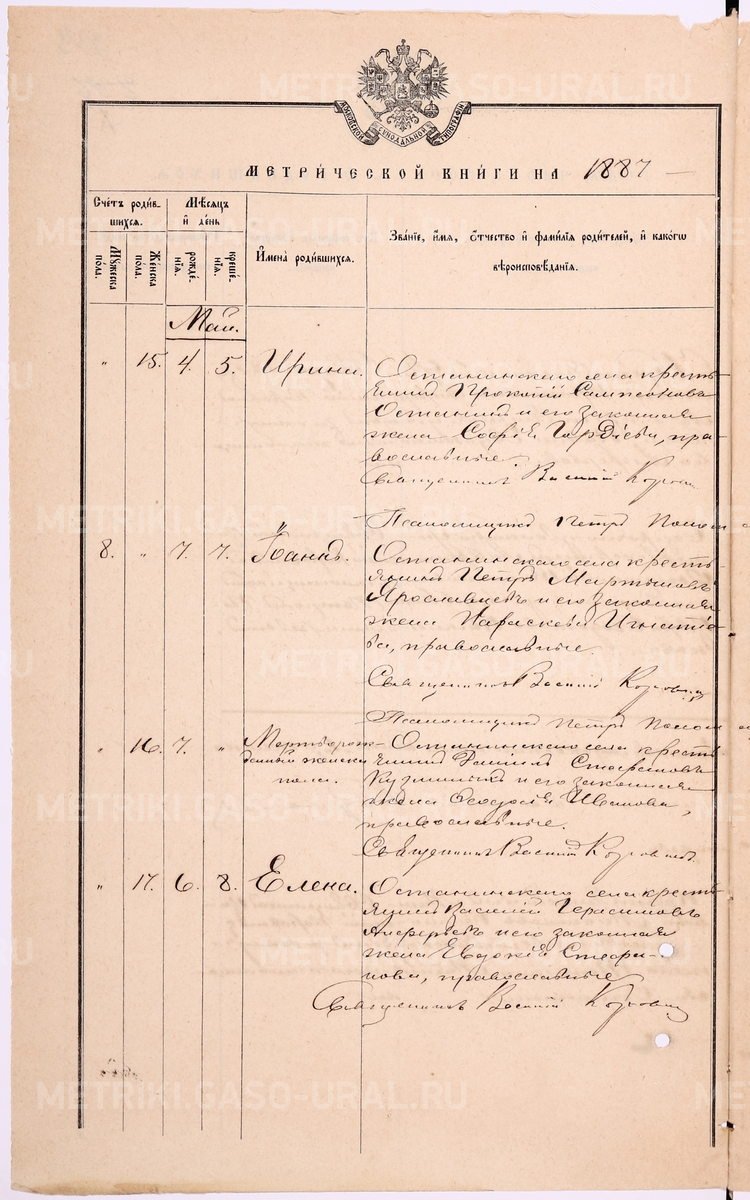 МОСКОВСКОЙ СѴНОДАЛЬНОЙ ТИПОГРАФІИ
МЕТРИ́ЧЕСКОЙ КНИ́ГИ НА 1887
Сче́тъ роди́в-
шихся.
Му́жеска по́ла.
Же́нска по́ла.
Мѣ́сяцъ
и де́нь
рожде́-
нїѧ.
креще́-
нїѧ.
И҆мена̀ роди́вшихся.
Зва́нїе, и҆́мя, ѻ҆́тчество и҆ фами́лїя роди́телей, и҆ како́гѡ
вѣроисповѣ́данїя.
Май.
" 15. 4. 5. Ирина.
Останинскаго села кресть-
янинъ Прокопій Сампсоновъ
Останинъ и его законная
жена Софія Гордіева, пра-
вославные
Священникъ Василій
Псаломщикъ Петръ
8. " 7. 7. Іоаннъ.
Останинскаго села кресть-
янинъ Петръ Мартыновъ
Ярославцевъ и его законная
жена Параскева Игнатіе-
ва, православные.
Священникъ Василій
Псаломщикъ Петръ
" 16. 7. " Мертворож-
денный женска
пола.
Останинскаго села кресть-
янинъ Стефановъ
Кузминыхъ и его законная
жена Ѳеодосія Иванова,
православные.
Священникъ Василій
" 17. 6. 8. Елена.
Останинскаго села кресть-
янинъ Василій Герасимовъ
Алферьевъ и его законная
жена Евдокія Стефа-
нова, православные
Священникъ Василій
METRIKI.GASO-URAL.RU